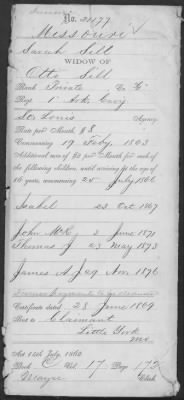 No. 24177
Missouri
Sarah Sill
WIDOW OF
Otto Sill
Rank Private Co. G
Regt 1" Ark. Cavy
St. Louis Agency
Rate per Month $8
Commencing 19 Feby. 1863
Additional sum of $2 per month for each of
the following children, until arriving at the age of
16 years, commencing 25 July 1866
Isabel 23 Oct 1867
John McK. 2 June 1871
Thomas J 23 May 1873
James A. J. 29 Nov 1876
Certificate dated 23 June 1869
Sent to Claimant
Little York
Mo.
Act 14th July, 1862
Book C Vol. 17 Page 172
Clerk